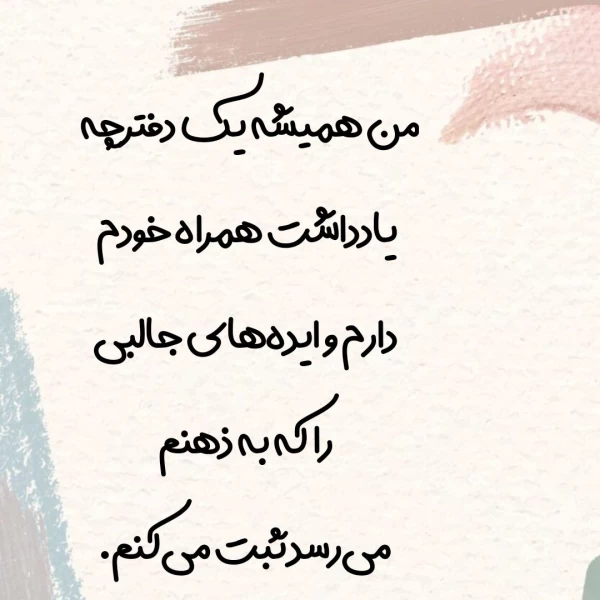 من همیشه یک دفترچه
یادداشت همراه خودم
دارم و ایده‌های جالبی
را که به ذهنم
می‌رسد ثبت می‌کنم.